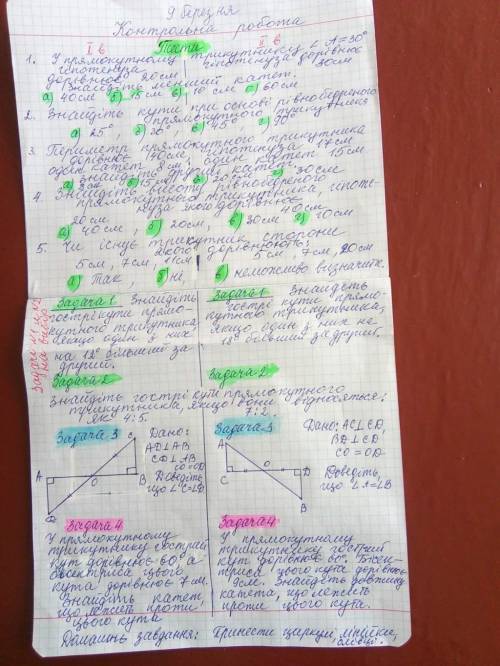 9 березня
Контрольна робота
І в Тести ІІ в
1. У прямокутному трикутнику ∠A=30°
гіпотенуза гіпотенуза дорівнює
дорівнює 20см 30см
Знайдіть менший катет.
а) 40см б) 15см в) 10 см г) 60см
2. Знайдіть кути при основі рівнобедреного
прямокутного трикутника
а) 25°, б) 30°, в) 45°, г) 90°
3. Периметр прямокутного трикутника
дорівнює 40см, гіпотенуза 17см
один катет 8см, один катет 15см
Знайдіть другий катет.
а) 8см б) 15см
4. Знайдіть висоту рівнобедреного
прямокутного трикутника, гіпоте-
нуза якого дорівнює
20см 40см
а) 40см, б) 20см, в) 30см г) 10см
5. Чи існує трикутник сторони
якого дорівнюють:
5см, 7см, 11см 5см, 7см, 20см
а) Так, б) ні, в) неможливо визначити.
Задачі №1 и №2
на вибір
Задача 1 Знайдіть
гострі кути прямо-
кутного трикутника
якщо один з них
на 12° більший за
другий.
Задача 1 Знайдіть
гострі кути прямо-
кутного трикутника,
якщо один з них на
18° більший за другий.
Задача 2 Задача 2
Знайдіть гострі кути прямокутного
трикутника, якщо вони відносяться:
як 4:5. 7:2.
Задача 3
Дано:
AD⊥AB
CB⊥AB
CO=OD
Доведіть,
що ∠C=∠D
A O C B D
Задача 3
Дано: AC⊥CD,
BD⊥CD,
CO=OD
Доведіть,
що ∠A=∠B
A C O D B
Задача 4
У прямокутному
трикутнику гострий
кут дорівнює 60°, а
бісектриса цього
кута дорівнює 7см.
Знайдіть катет,
що лежить проти
цього кута
Задача 4
У прямокутному
трикутнику гострий
кут дорівнює 60°. Бісек-
триса цього кута дорівнює
9см. Знайдіть довжину
катета, що лежить
проти цього кута.
Домашнє завдання: Принести циркуль, лінійки,
олівці.